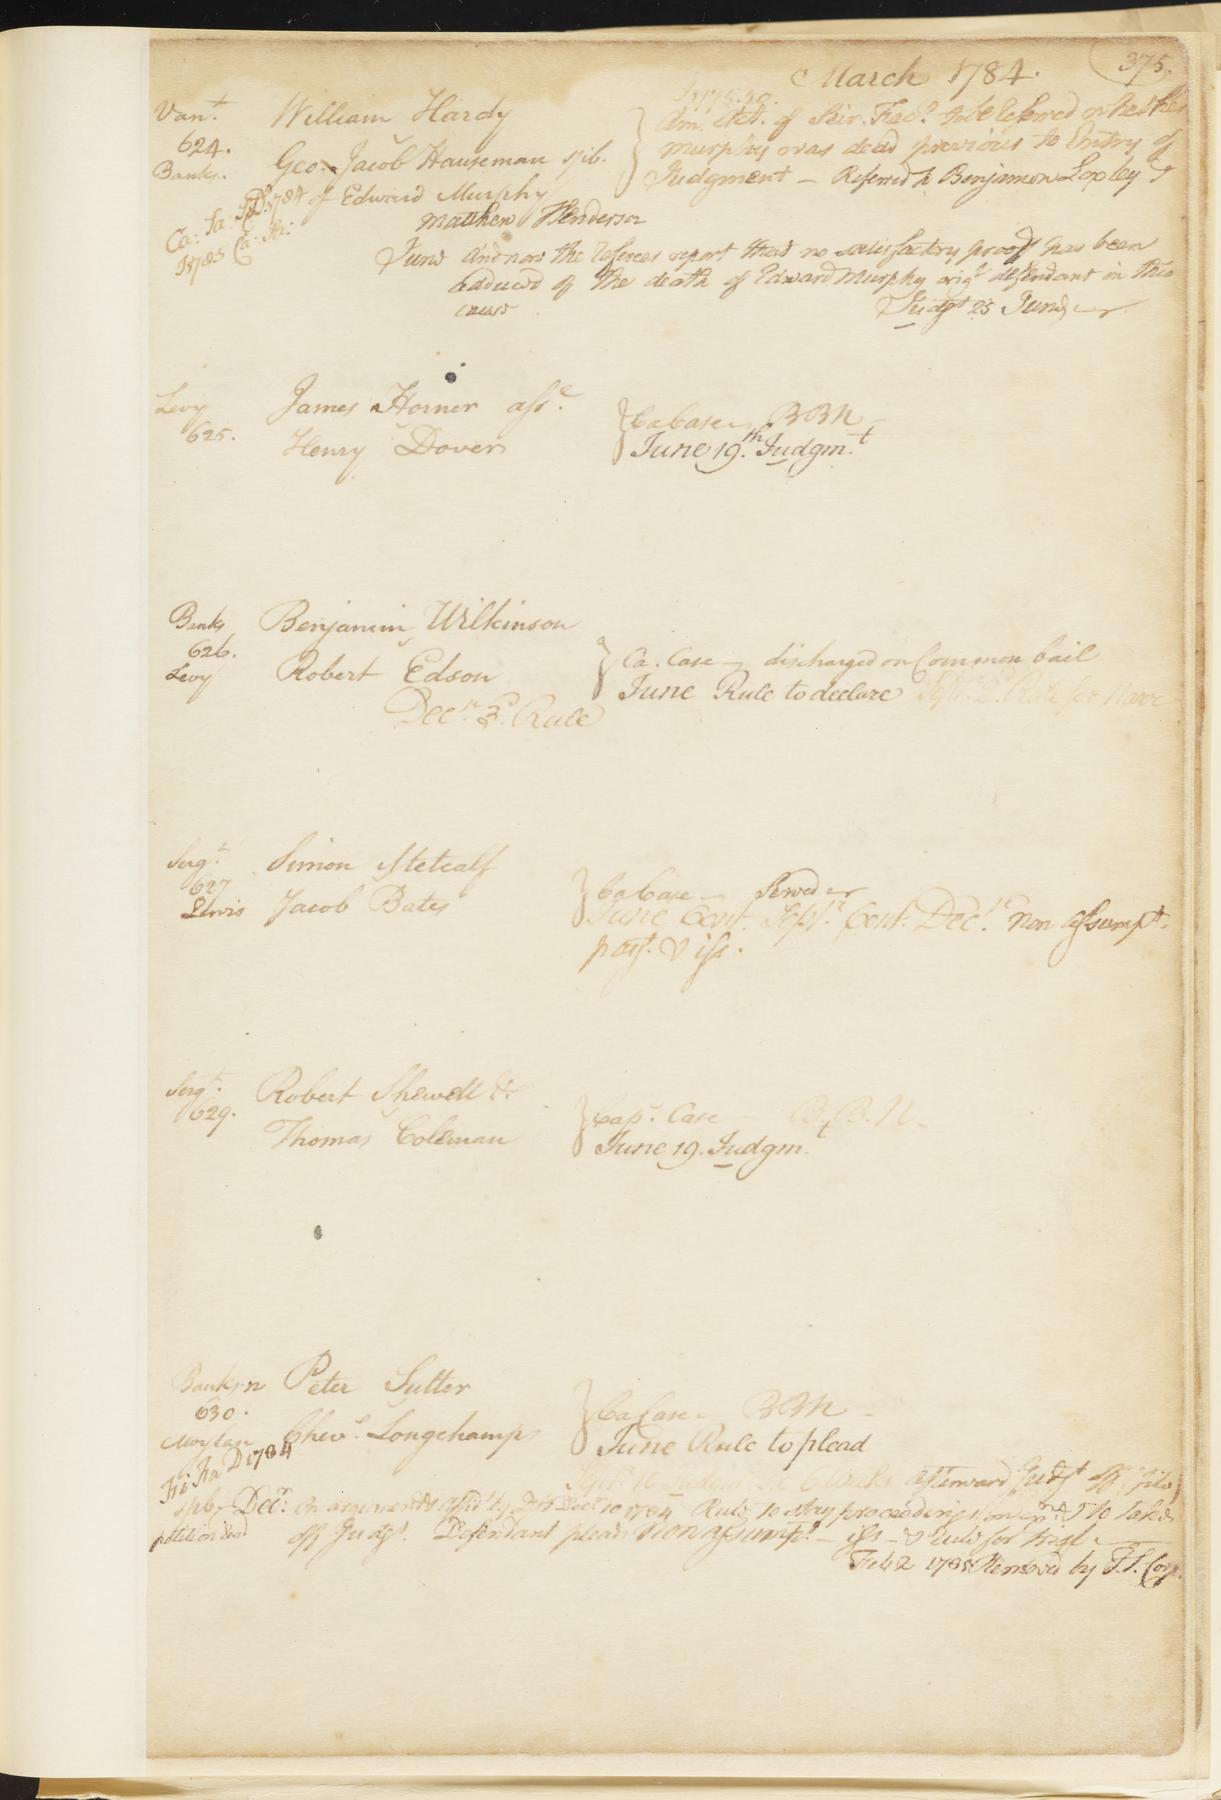 March 1784.
375.
Van.t William Hardy
624.
Banks. Geo: Jacob Hauseman spib.
of Edward Murphy
Am. Act. of Scir. Fac.s to be referred whether
Murphy was dead previous to Entry of
Judgment — Referred to Benjamin Loxley &
Matthew Henderson
Ca: Sa: 1784
1785 Ca: Sa:
June And now the referees report that no satisfactory proof has been
adduced of the death of Edward Murphy orig.l defendant in this
cause
Judgt 25 June
Levy James Horner ass.e
625. Henry Dover
Ca Case — BBN —
June 19.th Judgm.t
Banks Benjamin Wilkinson
626.
Levy Robert Edson
Ca. Case — discharged on Common bail
June Rule to declare Sept.r Rule for Narr
Dec.r 3.d Rule
Serg.t Simon Metcalf
627
Lewis Jacob Bates
Ca Case — Served
June Cont. Sept.r Cont. Dec.r non assumpt.
pay.t & iss.
Serg.t Robert Shewell &c
629. Thomas Coleman
Cap.s Case — B.B.N.
June 19. Judgm.t
Banks Peter Sutter
630.
Moylan Chev.r Longchamps
Ca Case — BBN —
June Rule to plead
Fi Fa D 1784
afterward Judgt
Dec.r On arguments Dec.r 10 1784 Rule to stay proceedings & to take
off Judgt. Defendant pleads Non assumpt. — iss — & Rule for trial
Feb 2 1785 Removed by